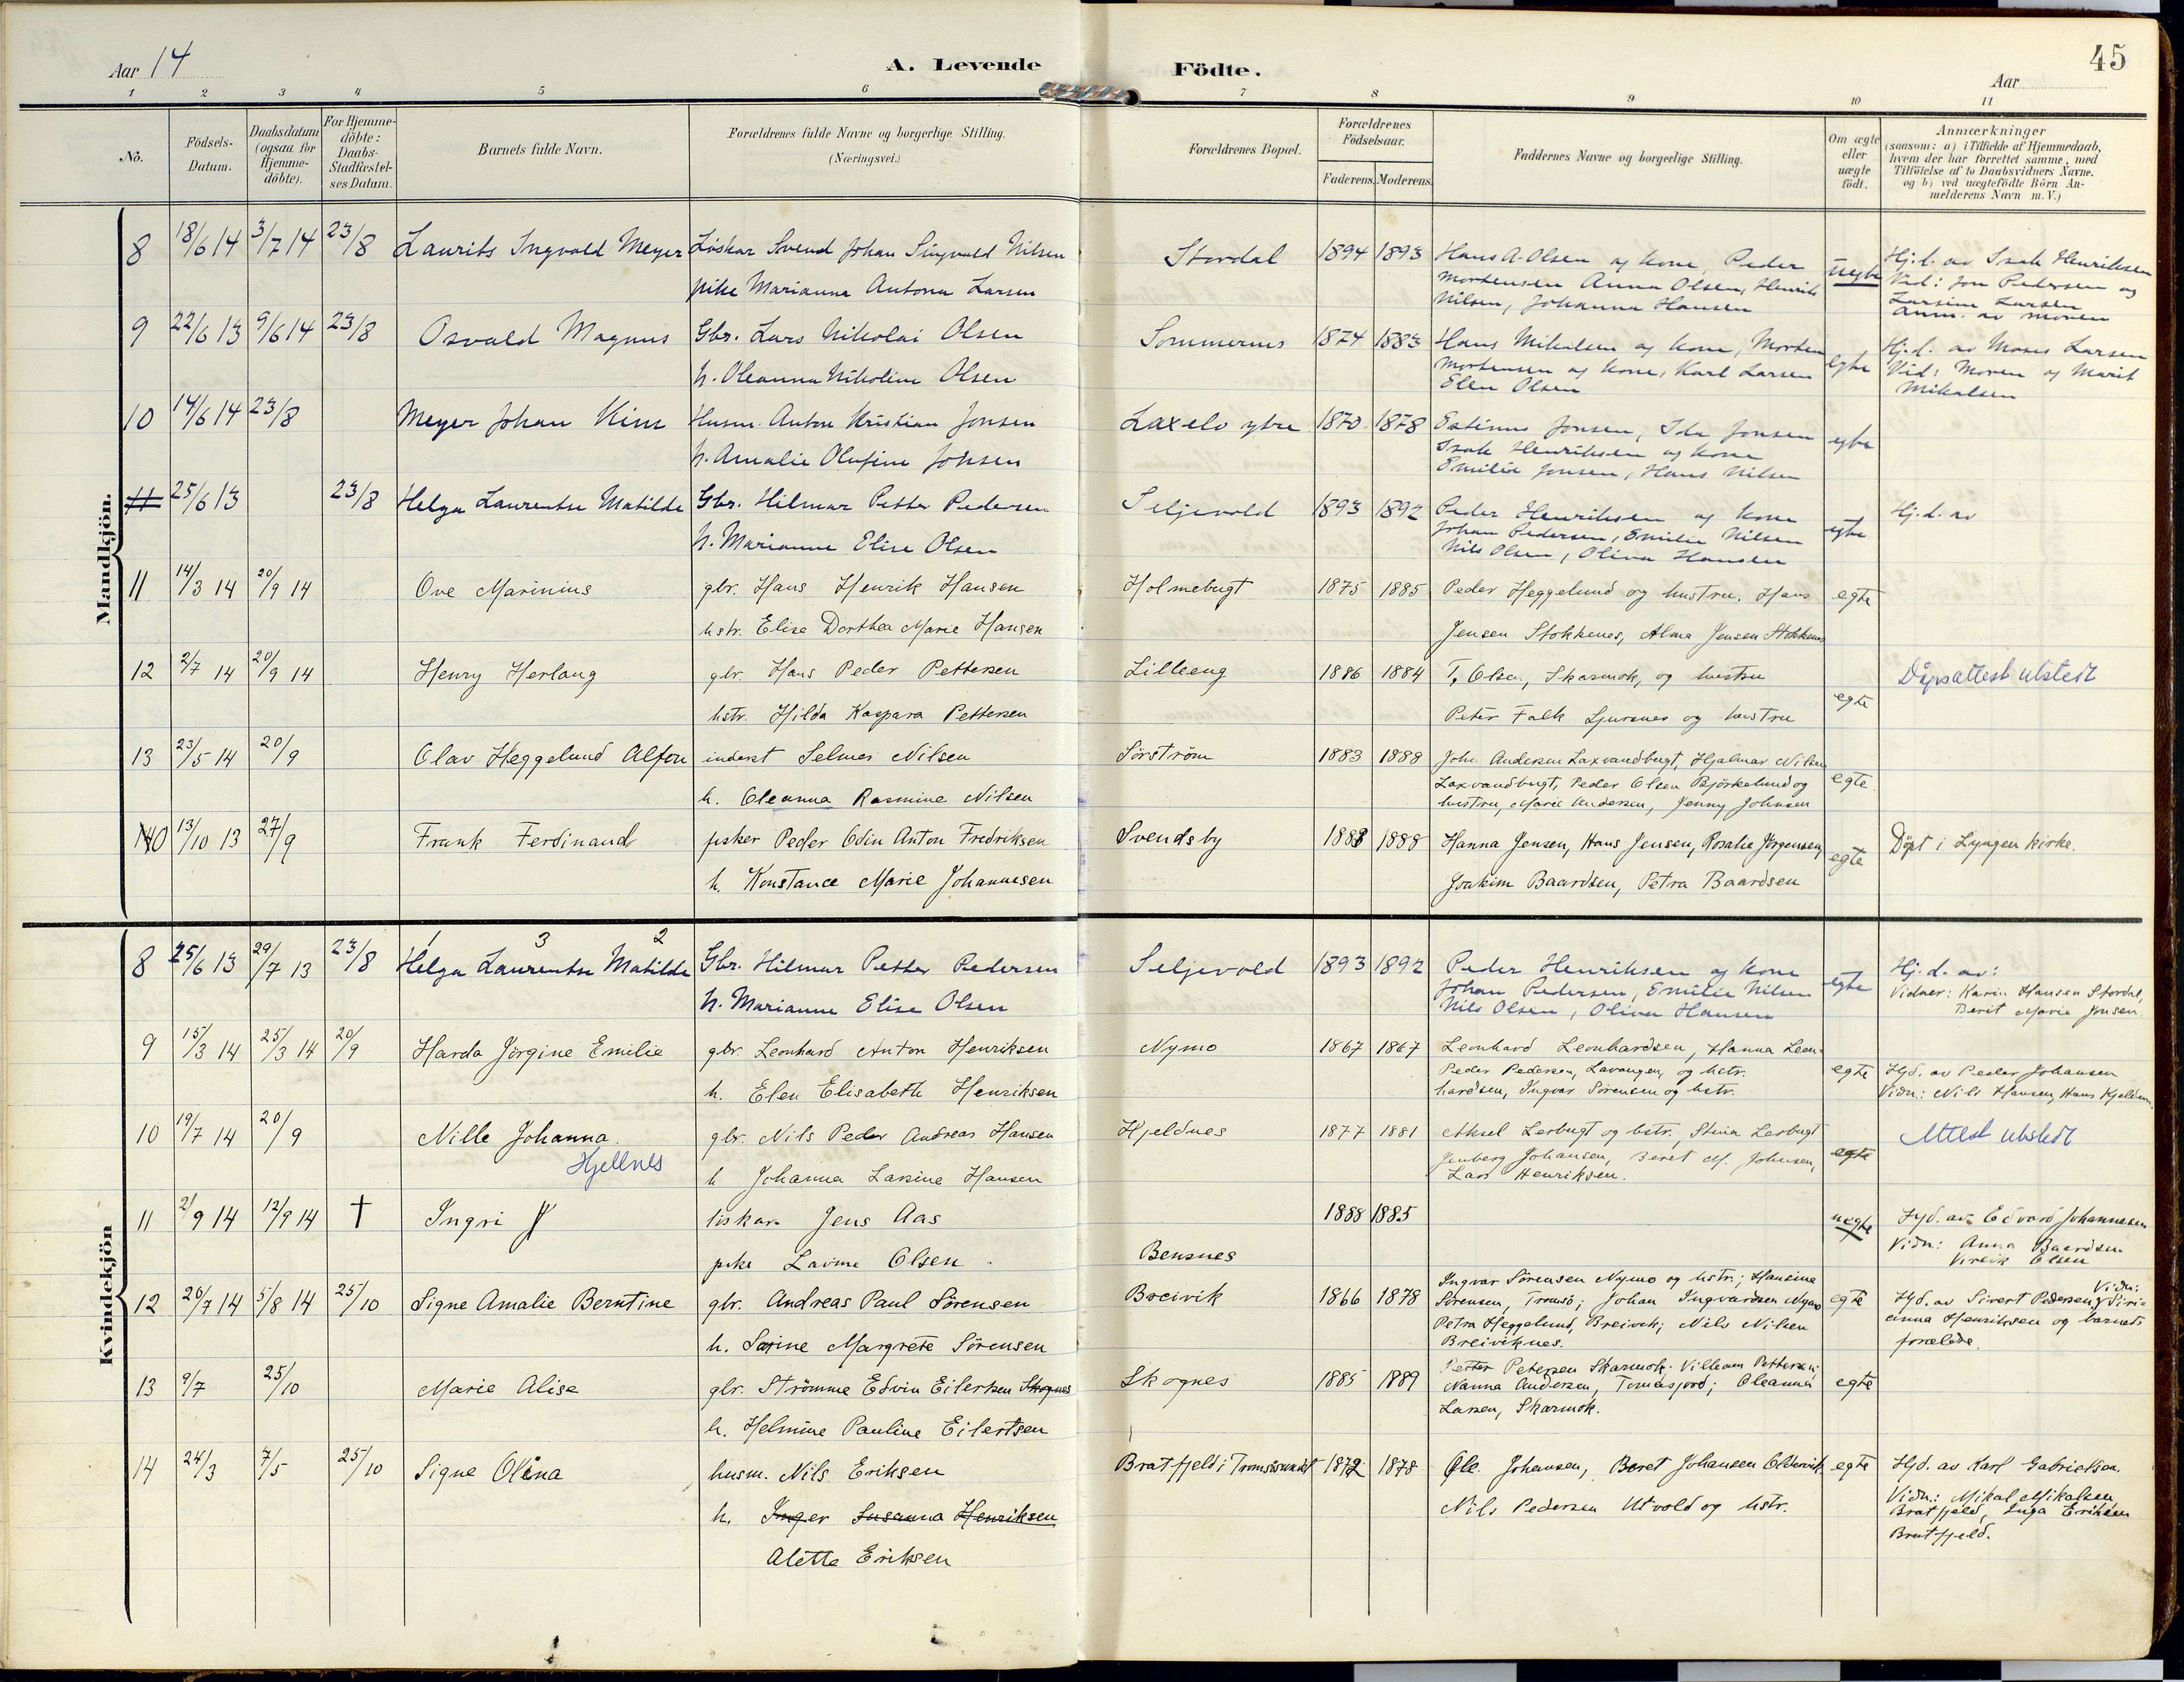 Aar 14
A. Levende Födte.
45
Aar
1 2 3 4 5 6 7 8 9 10 11
No.
Födsels-Datum.
Daabsdatum (ogsaa for Hjemmedöbte).
For Hjemmedöbte: Daabs-Stadfæstelses Datum.
Barnets fulde Navn.
Forældrenes fulde Navne og borgerlige Stilling. (Næringsvei.)
Forældrenes Bopæl.
Forældrenes Födselsaar.
Faderens. Moderens.
Faddernes Navne og borgerlige Stilling.
Om ægte eller uægte födt.
Anmærkninger (saasom: a) i Tilfælde af Hjemmedaab, hvem der har forrettet samme, med Tilföielse af to Daabsvidners Navne, og b) ved uægtefödte Börn Anmelderens Navn m. V.)
Mandkjön.
8 18/6 14 3/7 14 23/8 Laurits Ingvald Meyer Löskar Svend Johan Singvald Nilsen Stordal 1894 1893 Hans A. Olsen og kone, Peder uegte Hj.d. av Isak Henriksen
pike Marianna Antona Larsen Mortensen Anna Olsen, Henrik Vid: Jon Pedersen og
Nilsen, Johanna Hansen Larsine Larsen
Anm. av moren
9 22/6 13 9/6 14 23/8 Osvald Magnus Gbr. Lars Nikolai Olsen Sommernes 1874 1883 Hans Mikalsen og kone, Morten egte Hj.d. av Moses Larsen
h. Oleanna Nikoline Olsen Mortensen og kone, Karl Larsen Vid: Moren og Marit
Elen Olsen Mikalsen
10 14/6 14 23/8 Meyer Johan Kim Husm. Anton Kristian Jonsen Laxelv ytre 1870 1878 Jonsen, Ida Jonsen egte
h. Amalie Olufine Johsen Isak Henriksen og kone
Emilie Jonsen, Hans Nilsen
11 25/6 13 23/8 Helga Laurentse Matilde Gbr. Hilmar Petter Pedersen Seljevold 1893 1892 Peder Henriksen og kone egte Hj.d. av
h. Marianne Elise Olsen Johan Pedersen, Emilie Nilsen
Nils Olsen, Olina Hansen
11 14/3 14 20/9 14 Ove Marinius gbr. Hans Henrik Hansen Holmebugt 1875 1885 Peder Heggelund og hustru. Hans egte
hstr. Elise Dorthea Marie Hansen Jensen Stokkenes, Alma Jensen Stokkenes
12 2/7 14 20/9 14 Henry Herlaug gbr. Hans Peder Pettersen Lilleeng 1886 1884 T. Olsen, Skarmok, og hustru egte Dåpsattest utstedt
hstr. Hilda Kaspara Pettersen Peter Falk Sjursnes og hustru
13 23/5 14 20/9 Olav Heggelund Alfon inderst Selmer Nilsen Sörström 1883 1888 Joh. Andersen Laxvandbugt, Hjalmar Nilsen egte
h. Oleanna Rasmine Nilsen Laxvandbugt, Peder Olsen Björkelund og
hustru, Marie Andersen, Jenny Johnsen
140 13/10 13 27/9 Frank Ferdinand fisker Peder Odin Anton Fredriksen Svendsby 1888 1888 Hanna Jensen, Hans Jensen, Rosalie Jörgensen, egte Döpt i Lyngen kirke.
h. Konstance Marie Johannesen Joakim Baardsen, Petra Baardsen
Kvindekjön
1 3 2
8 25/6 13 29/7 13 23/8 Helga Laurentse Matilde Gbr. Hilmar Petter Pedersen Seljevold 1893 1892 Peder Henriksen og kone egte Hj.d. av:
h. Marianne Elise Olsen Johan Pedersen, Emilie Nilsen Vidner: Karin Hansen Stordal,
Nils Olsen, Olina Hansen Berit Marie Jonsen.
9 15/3 14 25/3 14 20/9 Harda Jörgine Emilie gbr. Leonhard Anton Henriksen Nymo 1867 1867 Leonhard Leonhardsen, Hanna Leon-
Peder Pedersen, Lavangen, og hstr. egte Hjd. av Peder Johansen
h. Elen Elisabeth Henriksen hardsen, Ingvar Sörensen og hstr. Vidn.: Nils Hansen, Hans Kjeldsen.
10 19/7 14 20/9 Nille Johanna. gbr. Nils Peder Andreas Hansen Hjeldnes 1877 1881 Aksel Lerbugt og hstr., Stina Lerbugt egte Attest utstedt
Hjellnes
h Johanna Larsine Hansen Jenberg Johansen, Beret M. Johnsen,
Lars Henriksen.
11 2/9 14 12/9 14 † Ingri löskar Jens Aas 1888 1885 uegte Hjd. av Edvard Johannesen
pike Lavine Olsen Bensnes Vidn: Anna Baardsen
Olsen
12 26/7 14 5/8 14 25/10 Signe Amalie Berntine gbr. Andreas Paul Sörensen Breivik 1866 1878 Ingvar Sörensen Nymo og hstr.; Hansine egte Vidn:
Sörensen, Tromsö; Johan Ingvardsen Nymo Hjd. av Sivert Pedersen, Siri-
h. Sarine Margrete Sörensen Petra Heggelund, Breivik; Nils Nilsen anna Henriksen og barnets
Breiviknes. forældre.
13 9/7 25/10 Marie Alise gbr. Strömme Edvin Eilertsen Skognes Skognes 1885 1889 Petter Petersen Skarmok; Villeam Pettersen; egte
Nanna Andersen, Tomasjord; Oleanna
h. Helmine Pauline Eilertsen Larsen, Skarmok.
14 24/3 7/5 25/10 Signe Olina husm. Nils Eriksen Bratfjeld i Tromsösundet 1872 1878 Ole Johansen, Beret Johansen Oldervik egte Hjd. av Karl Gabrielsen.
h. Inger Susanna Henriksen Nils Pedersen Utvold og hstr. Vidn.: Mikal Mikalsen
Bratfjeld, Inga Eriksen
Alette Eriksen Bratfjeld.